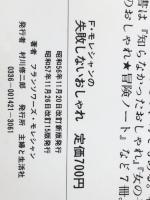 書は『知らなかったおしゃれ』『女の
のおしゃれ★冒険ノート』など7冊。
F・モレシャンの
失敗しないおしゃれ 定価700円
昭和56年11月20日改訂新版発行
昭和57年11月26日改訂15版発行
著者 フランソワーズ・モレシャン
発行者 村川修二郎
発行所 主婦と生活社
0336-001421-3061